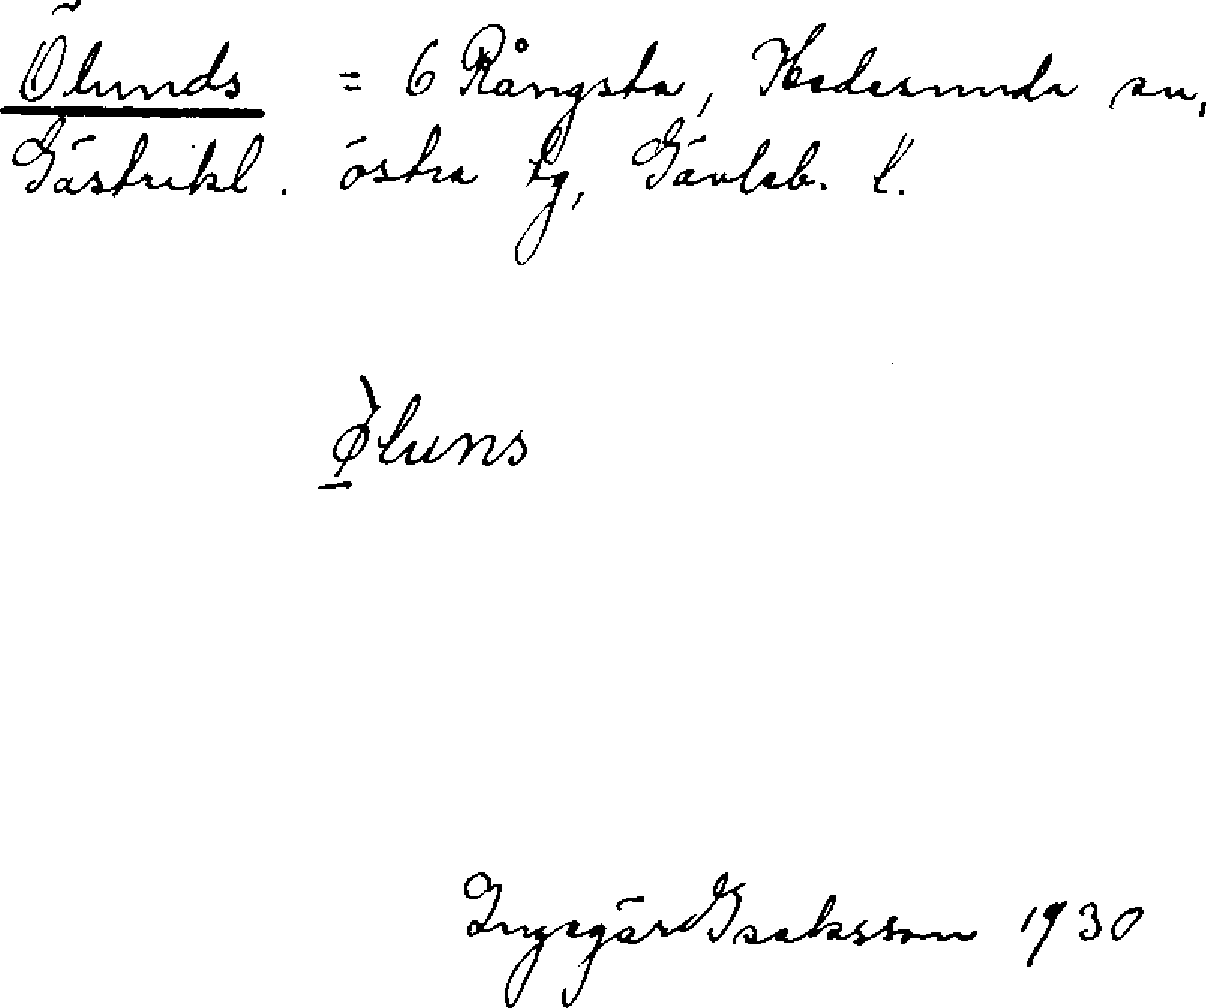 Ölunds = 6 Rångsta, Hedesunda sn,
Gästrikl. östra tg, Gävleb. l.
Ø̀luns
Ingegär Isaksson 1930